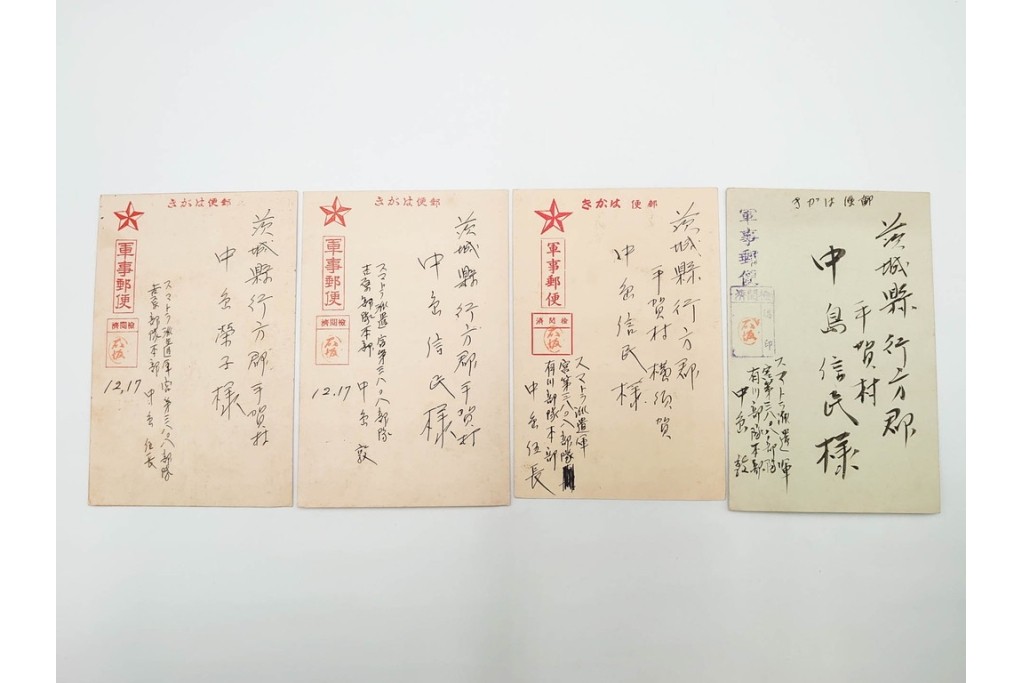 きかは便郵
軍事郵便
濟閲檢
茨城縣行方郡手賀村
中島榮子様
スマトラ派遣軍富第三八〇八部隊
本部
中島伍長
12.17
きかは便郵
軍事郵便
濟閲檢
茨城縣行方郡手賀村
中島信民様
スマトラ派遣富第三八〇八部隊
部隊本部
中島敦
12.17
きかは便郵
軍事郵便
濟閲檢
茨城縣行方郡
手賀村横須賀
中島信民様
スマトラ派遣軍
富第三八〇八部隊
有川部隊本部
中島伍長
きかは便郵
軍事郵便
印
茨城縣行方郡
手賀村
中島信民様
スマトラ派遣軍
富第三八〇八部隊
有川部隊本部
中島敦